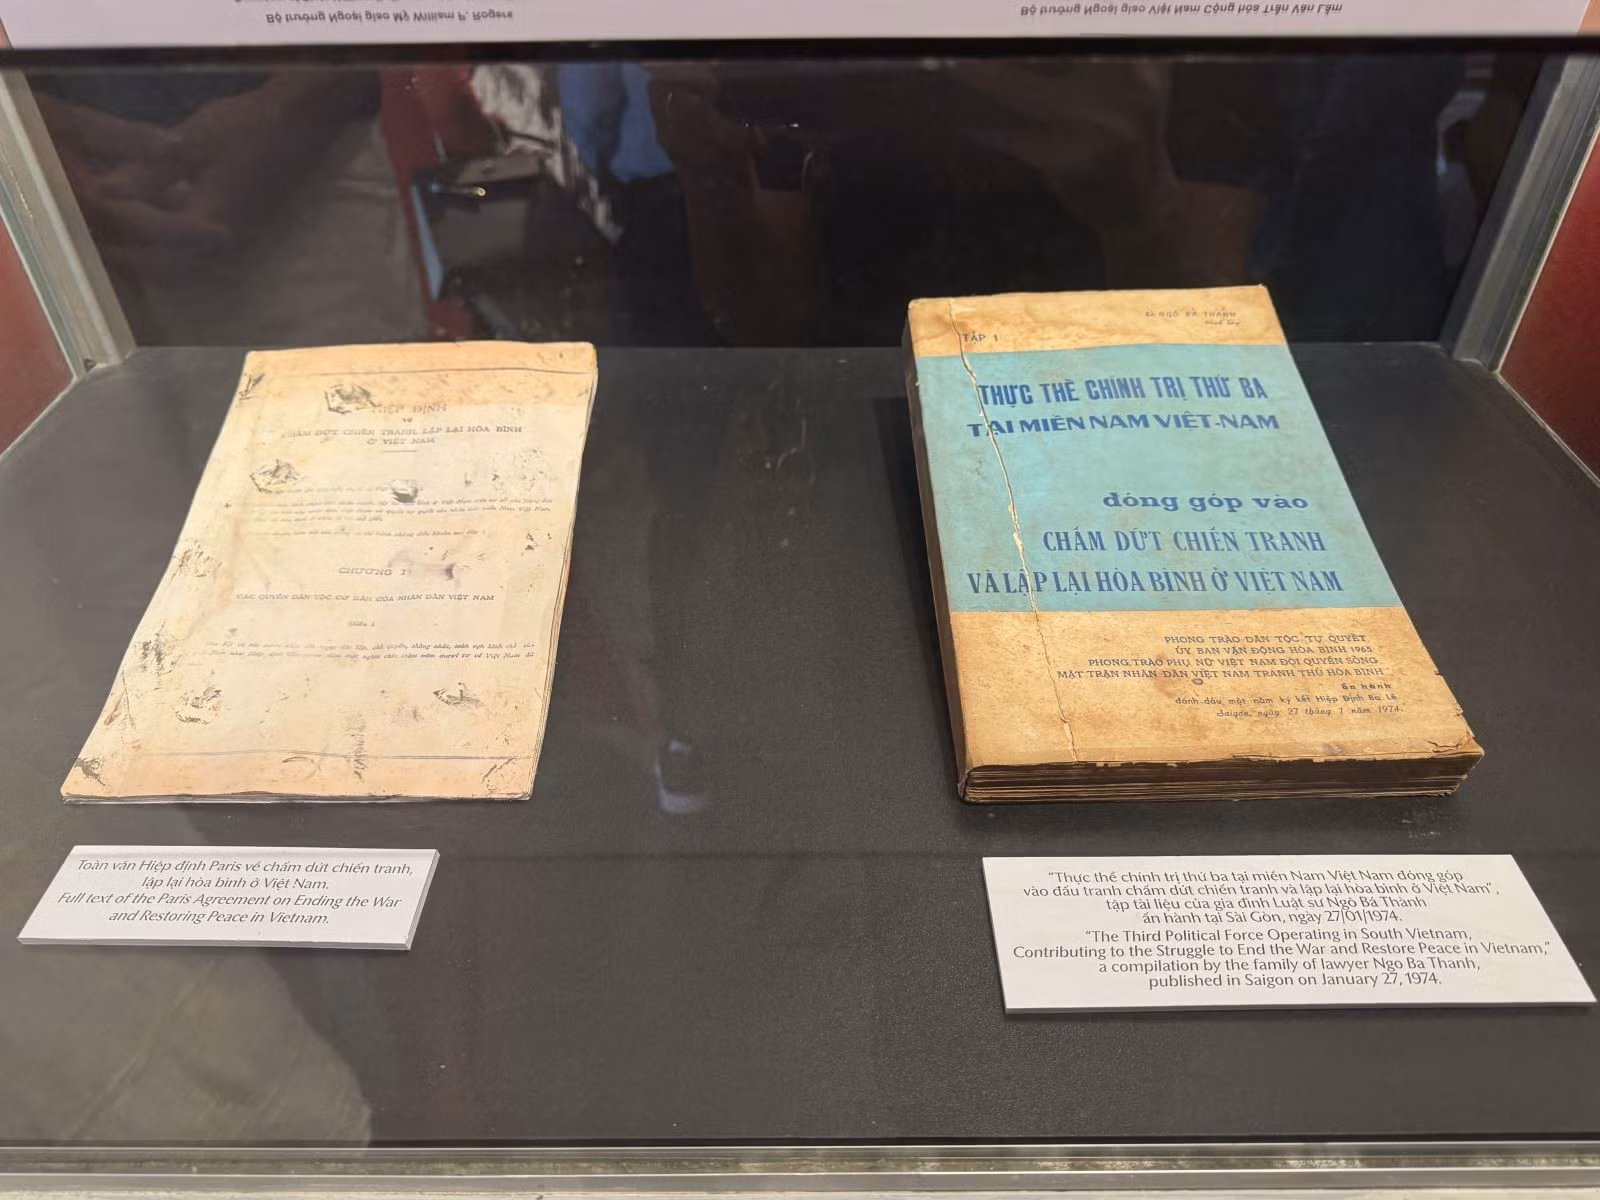 Bộ trưởng Ngoại giao Mỹ William P. Rogers
Bộ trưởng Ngoại giao Việt Nam Cộng hòa Trần Văn Lắm
HIỆP ĐỊNH
VỀ
CHẤM DỨT CHIẾN TRANH, LẬP LẠI HÒA BÌNH
Ở VIỆT NAM
CHƯƠNG I
CÁC QUYỀN DÂN TỘC CƠ BẢN CỦA NHÂN DÂN VIỆT NAM
Điều 1
Toàn văn Hiệp định Paris về chấm dứt chiến tranh,
lập lại hòa bình ở Việt Nam.
Full text of the Paris Agreement on Ending the War
and Restoring Peace in Vietnam.
Bà NGÔ BÁ THÀNH
TẬP 1
THỰC THỂ CHÍNH TRỊ THỨ BA
TẠI MIỀN NAM VIỆT-NAM
đóng góp vào
CHẤM DỨT CHIẾN TRANH
VÀ LẬP LẠI HÒA BÌNH Ở VIỆT NAM
PHONG TRÀO DÂN TỘC TỰ QUYẾT
ỦY BAN VẬN ĐỘNG HÒA BÌNH 1965
PHONG TRÀO PHỤ NỮ VIỆT NAM ĐÒI QUYỀN SỐNG
MẶT TRẬN NHÂN DÂN VIỆT NAM TRANH THỦ HÒA BÌNH
ấn hành
đánh dấu một năm ký kết Hiệp Định Ba Lê
Saigon, ngày 27 tháng 1 năm 1974.
“Thực thể chính trị thứ ba tại miền Nam Việt Nam đóng góp
vào đấu tranh chấm dứt chiến tranh và lập lại hòa bình ở Việt Nam”,
tập tài liệu của gia đình Luật sư Ngô Bá Thành
ấn hành tại Sài Gòn, ngày 27/01/1974.
“The Third Political Force Operating in South Vietnam,
Contributing to the Struggle to End the War and Restore Peace in Vietnam,”
a compilation by the family of lawyer Ngo Ba Thanh,
published in Saigon on January 27, 1974.